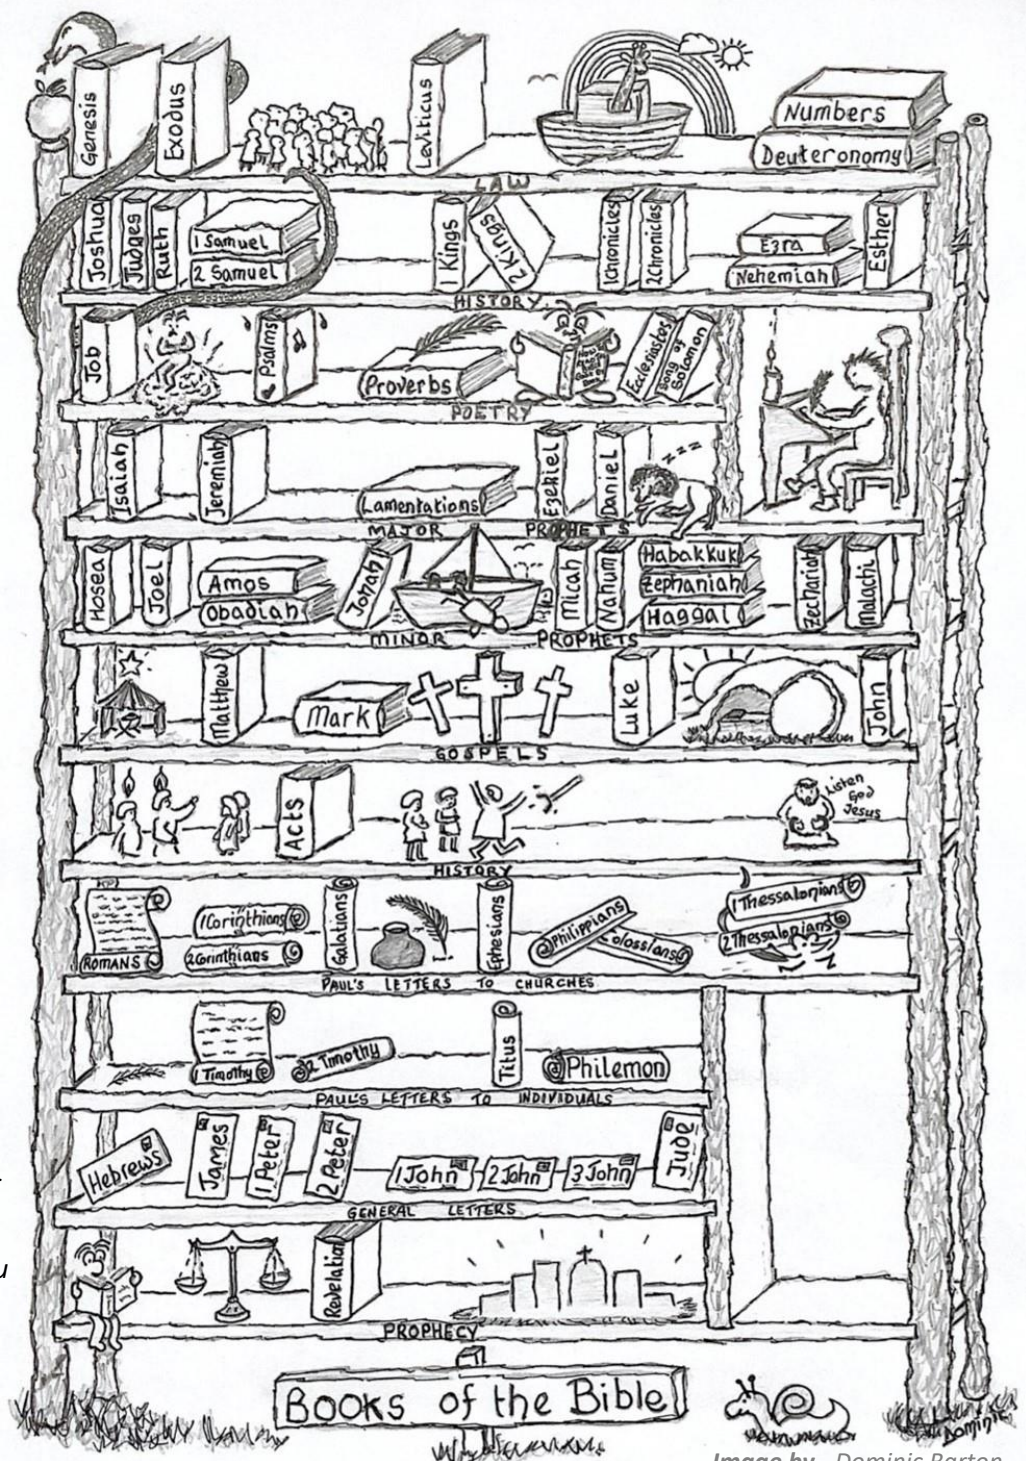 Genesis
Exodus
Leviticus
Numbers
Deuteronomy
LAW
Joshua
Judges
Ruth
1 Samuel
2 Samuel
1 Kings
2 Kings
1 Chronicles
2 Chronicles
Ezra
Nehemiah
Esther
HISTORY
Job
Psalms
Proverbs
Ecclesiastes
Song of
Solomon
POETRY
Isaiah
Jeremiah
Lamentations
Ezekiel
Daniel
z z z
MAJOR PROPHETS
Hosea
Joel
Amos
Obadiah
Jonah
Micah
Nahum
Habakkuk
Zephaniah
Haggai
Zechariah
Malachi
MINOR PROPHETS
Matthew
Mark
Luke
John
GOSPELS
Acts
Listen
God
Jesus
HISTORY
ROMANS
1 Corinthians
2 Corinthians
Galatians
Ephesians
Philippians
Colossians
1 Thessalonians
2 Thessalonians
PAUL'S LETTERS TO CHURCHES
1 Timothy
2 Timothy
Titus
Philemon
PAUL'S LETTERS TO INDIVIDUALS
Hebrews
James
1 Peter
2 Peter
1 John
2 John
3 John
Jude
GENERAL LETTERS
Revelation
PROPHECY
Books of the Bible
Dominic
Image by Dominic Barton